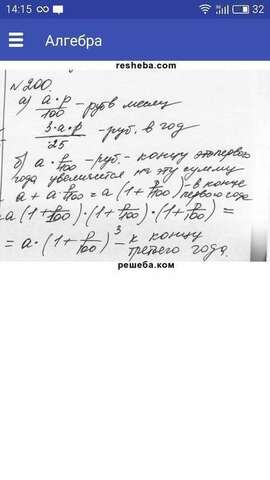 14:15
32
Алгебра
resheba.com
№200.
а) a·p/100 - руб в месяц
3·a·p/25 - руб. в год
б) a·p/100 - руб. - концу первого
года увеличится на эту сумму
a + a·p/100 = a(1+p/100) - в конце первого года
a(1+p/100)·(1+p/100)·(1+p/100) =
= a·(1+p/100)³ - к концу
третьего года.
решеба.ком